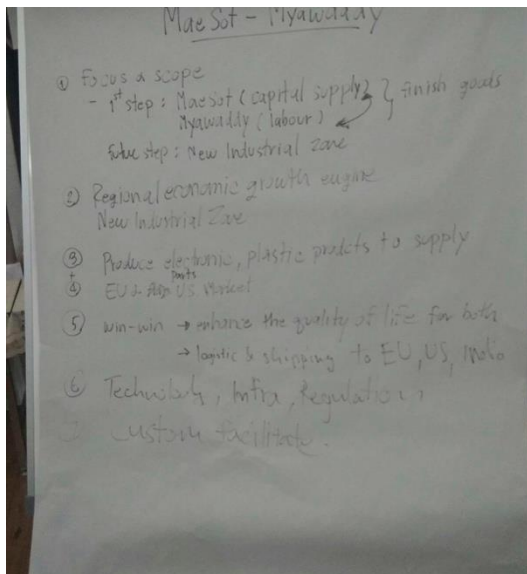 MaeSot - Myawaddy
① Focus & scope
- 1st step : MaeSot (capital supply) } finish goods
Myawaddy (labour)
future step : New Industrial Zone
② Regional economic growth engine
New Industrial Zone
③ Produce electronic, plastic prodcts to supply
+ parts
④ EU & US Market
⑤ win-win → enhance the quality of life for both
→ logistic & shipping to EU, US, India
⑥ Technology, Infra, Regulation,
Custom facilitate.